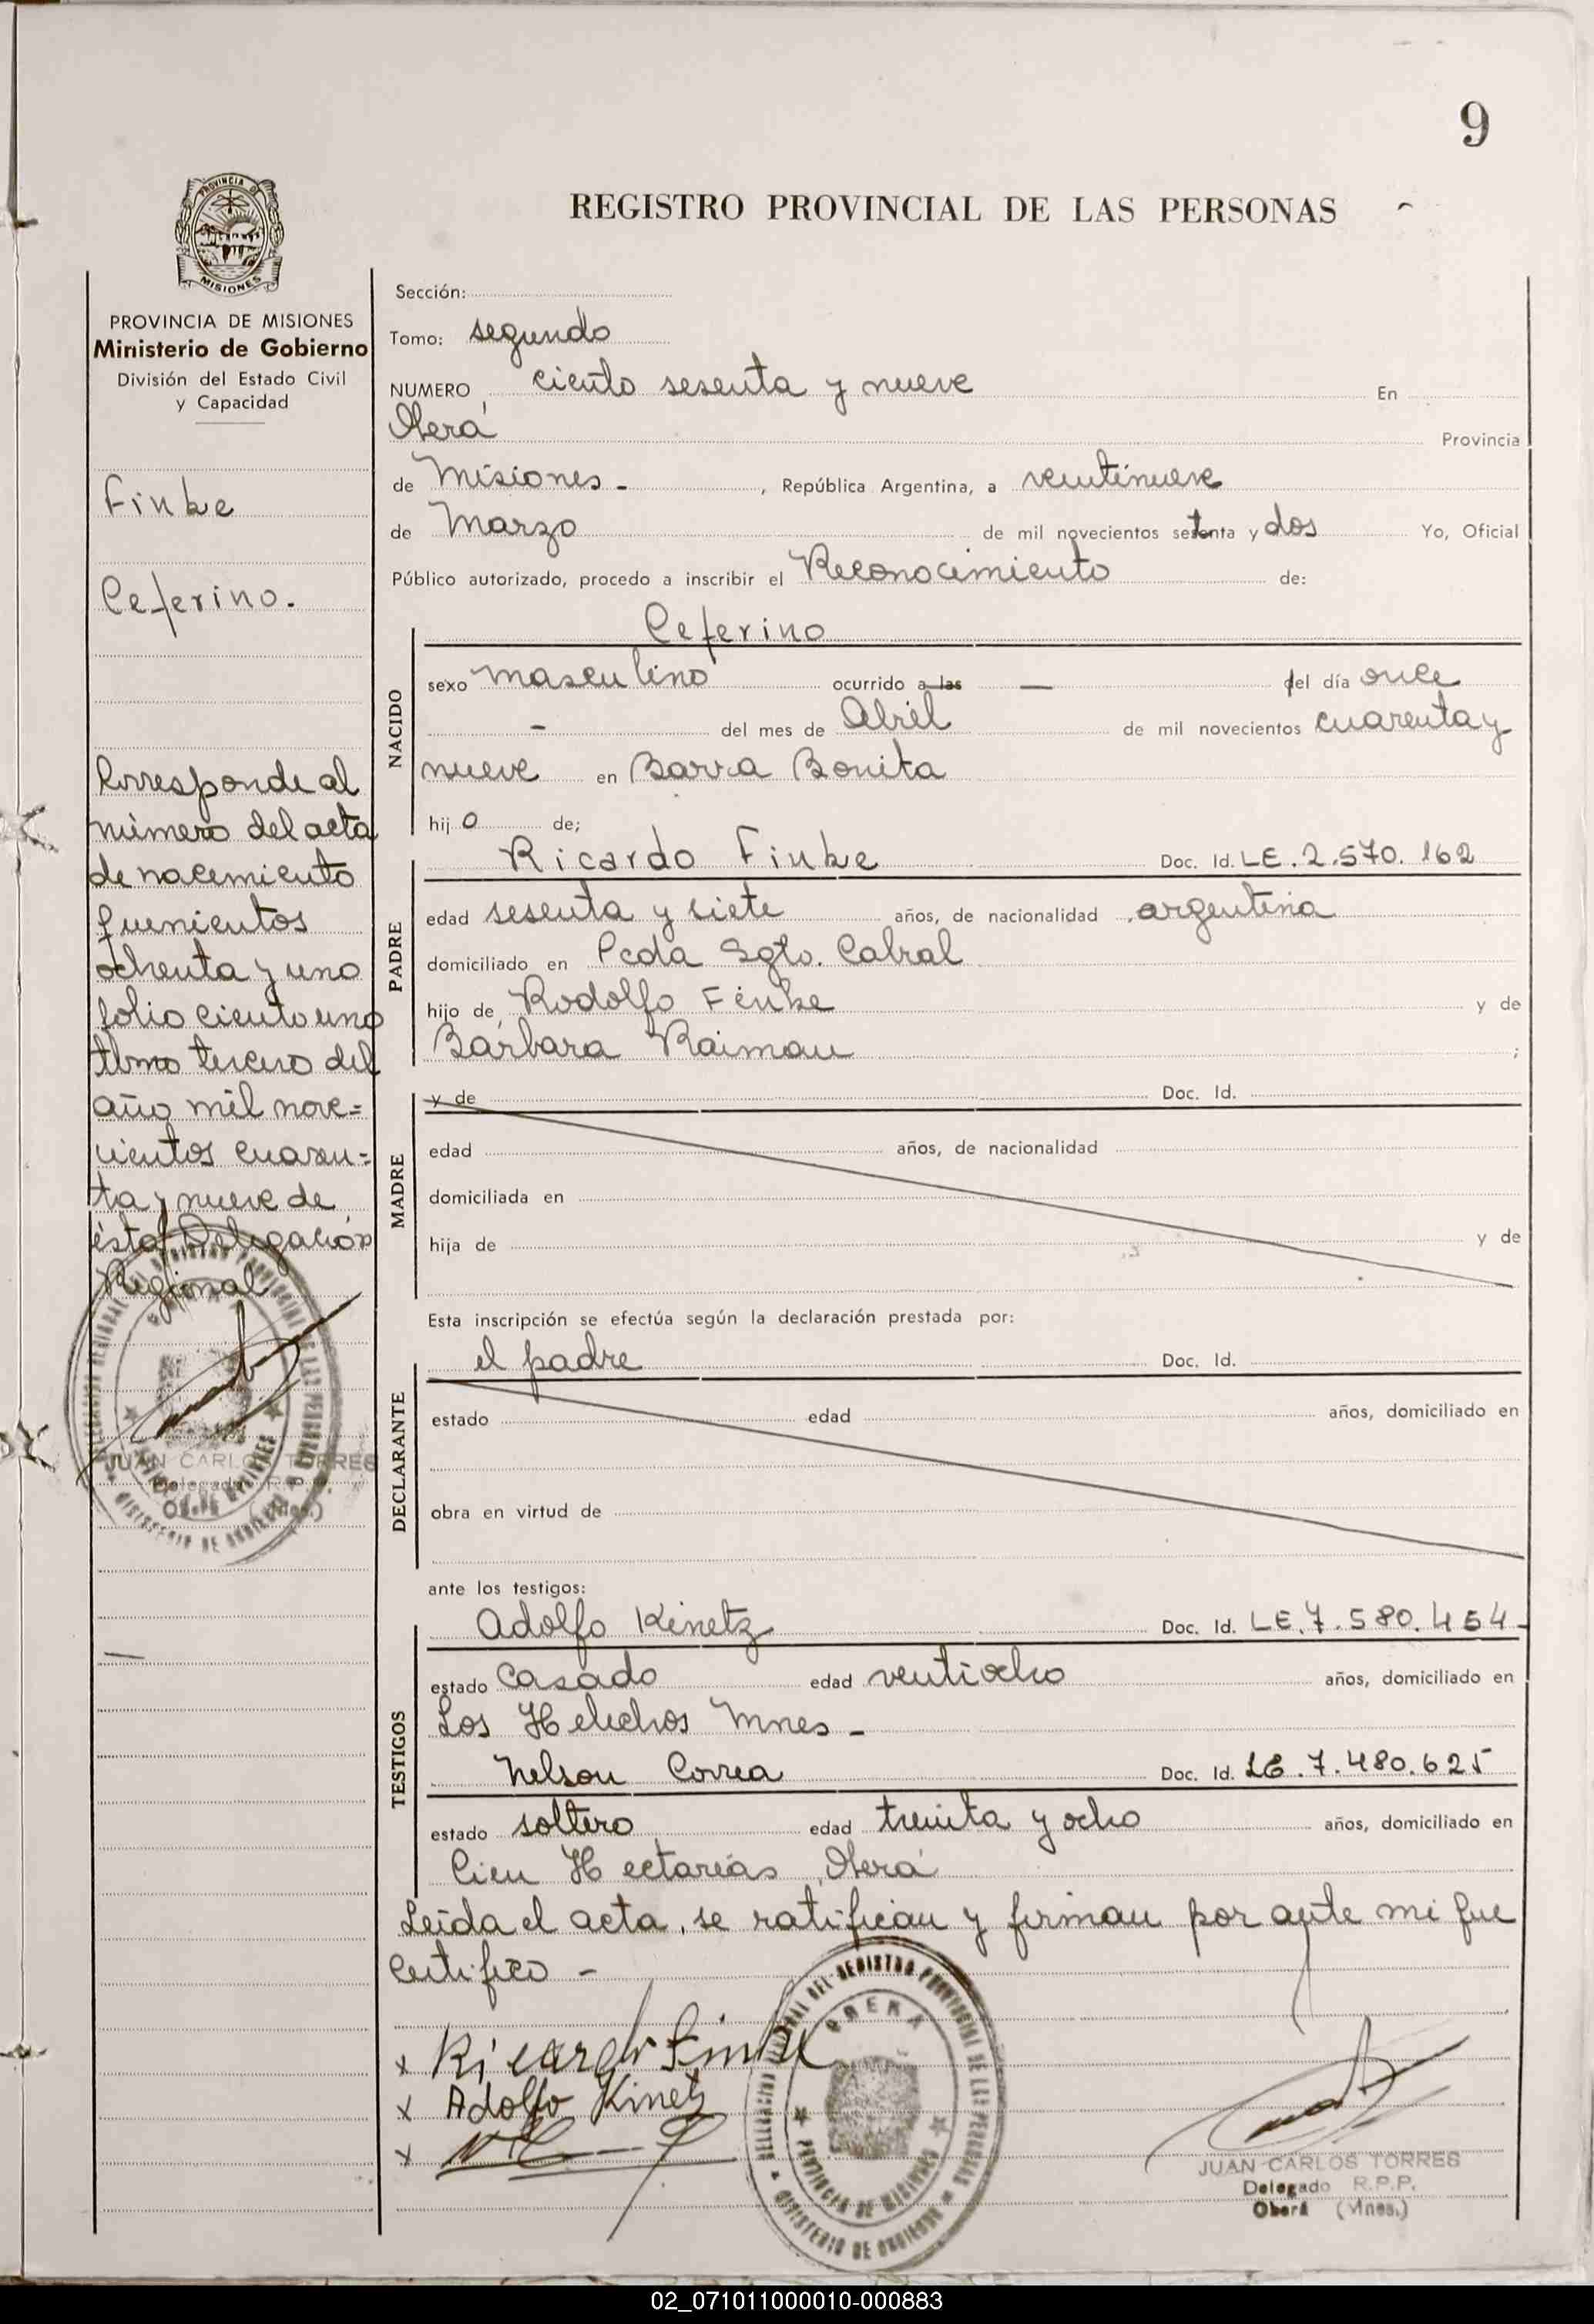 9
REGISTRO PROVINCIAL DE LAS PERSONAS
PROVINCIA DE MISIONES
Ministerio de Gobierno
División del Estado Civil
y Capacidad
Finke
Ceferino.
Corresponde al
número del acta
de nacimiento
quinientos
ochenta y uno
folio ciento uno
tomo tercero del
año mil nove=
cientos cuaren=
ta y nueve de
ésta Delegación
Regional
JUAN CARLOS TORRES
Delegado R.P.P.
Oberá (Mnes.)
Sección:
Tomo: segundo
NUMERO ciento sesenta y nueve En
Oberá Provincia
de Misiones - , República Argentina, a veintinueve
de Marzo de mil novecientos setenta y dos Yo, Oficial
Público autorizado, procedo a inscribir el Reconocimiento de:
Ceferino
NACIDO
sexo masculino ocurrido a las — del día once
- del mes de Abril de mil novecientos cuarenta y
nueve en Barra Bonita
hijo de;
PADRE
Ricardo Finke Doc. Id. LE. 2.570.162
edad sesenta y siete años, de nacionalidad argentina
domiciliado en Pcda Sgto. Cabral
hijo de Rodolfo Finke y de
Bárbara Raiman ;
MADRE
y de Doc. Id.
edad años, de nacionalidad
domiciliada en
hija de y de
Esta inscripción se efectúa según la declaración prestada por:
DECLARANTE
el padre Doc. Id.
estado edad años, domiciliado en
obra en virtud de
ante los testigos:
TESTIGOS
Adolfo Kinetz Doc. Id. LE. 7.580.454
estado casado edad ventiocho años, domiciliado en
Los Helechos Mnes -
Nelson Correa Doc. Id. LE. 7.480.625
estado soltero edad treinta y ocho años, domiciliado en
Cien Hectareas, Oberá
Leída el acta, se ratifican y firman por ante mi que
certifico -
x Ricardo Finke
x Adolfo Kinetz
x
DELEGACION REGIONAL DEL REGISTRO PROVINCIAL DE LAS PERSONAS
OBERA
PROVINCIA DE MISIONES
MINISTERIO DE GOBIERNO
JUAN CARLOS TORRES
Delegado R.P.P.
Oberá (Mnes.)
02_071011000010-000883